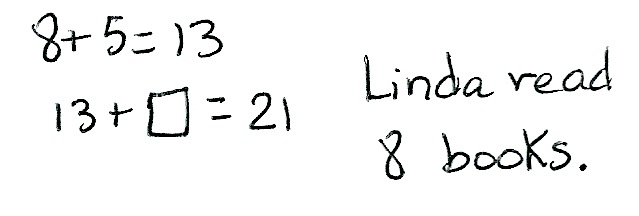 8+5=13
13+□=21
Linda read
8 books.